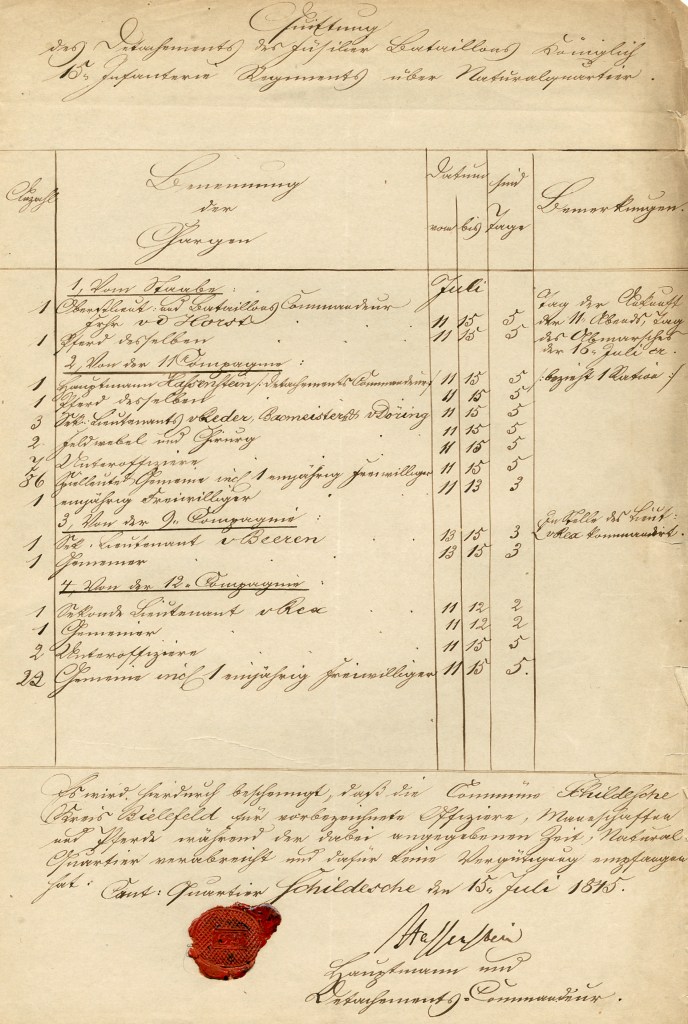 Quittung
des Detachements des Füsilier Bataillons Königlich
15ten Infanterie Regiments über Naturalquartier.
Anzahl
Benennung
der
Chargen
Datum
vom bis
sind
Tage
Bemerkungen.
1, Vom Staabe:
Juli
1 Oberstlieut: und Bataillons Commandeur
Frhr v d Horst 11 15 5
1 Pferd desselben 11 15 5
Tag der Ankunft
der 11te Abends, Tag
des Abmarsches
der 16te Juli cr.
2, Von der 11ten Compagnie:
1 Hauptmann Hassenstein /: Detachements Commandeur :/ 11 15 5 /: bezieht 1 Ration :/
1 Pferd desselben 11 15 5
3 Sek: Lieutenants v Reder, Baumeister, v Döring 11 15 5
2 Feldwebel und Chirurg 11 15 5
7 Unteroffiziere 11 15 5
86 Gemeine incl 1 einjährig Freiwilliger 11 15 5
1 einjährig Freiwilliger 11 13 3
3, Von der 9ten Compagnie:
1 Sek: Lieutenant v Beeren 13 15 3
1 Gemeiner 13 15 3
An Stelle des Lieut:
v Rex kommandirt.
4, Von der 12ten Compagnie:
1 Sekonde Lieutenant v Rex 11 12 2
1 Gemeiner 11 12 2
2 Unteroffiziere 11 15 5
22 Gemeine incl 1 einjährig Freiwilliger 11 15 5.
Es wird hierdurch bescheinigt, daß die Commüne Schildesche
Kreis Bielefeld für vorbezeichnete Offiziere, Mannschaften
und Pferde während der dabei angegebenen Zeit, Natural-
Quartier verabreicht und dafür keine Vergütigung empfangen
hat:
Cant: Quartier Schildesche den 15ten Juli 1845.
Hassenstein
Hauptmann und
Detachements-Commandeur.